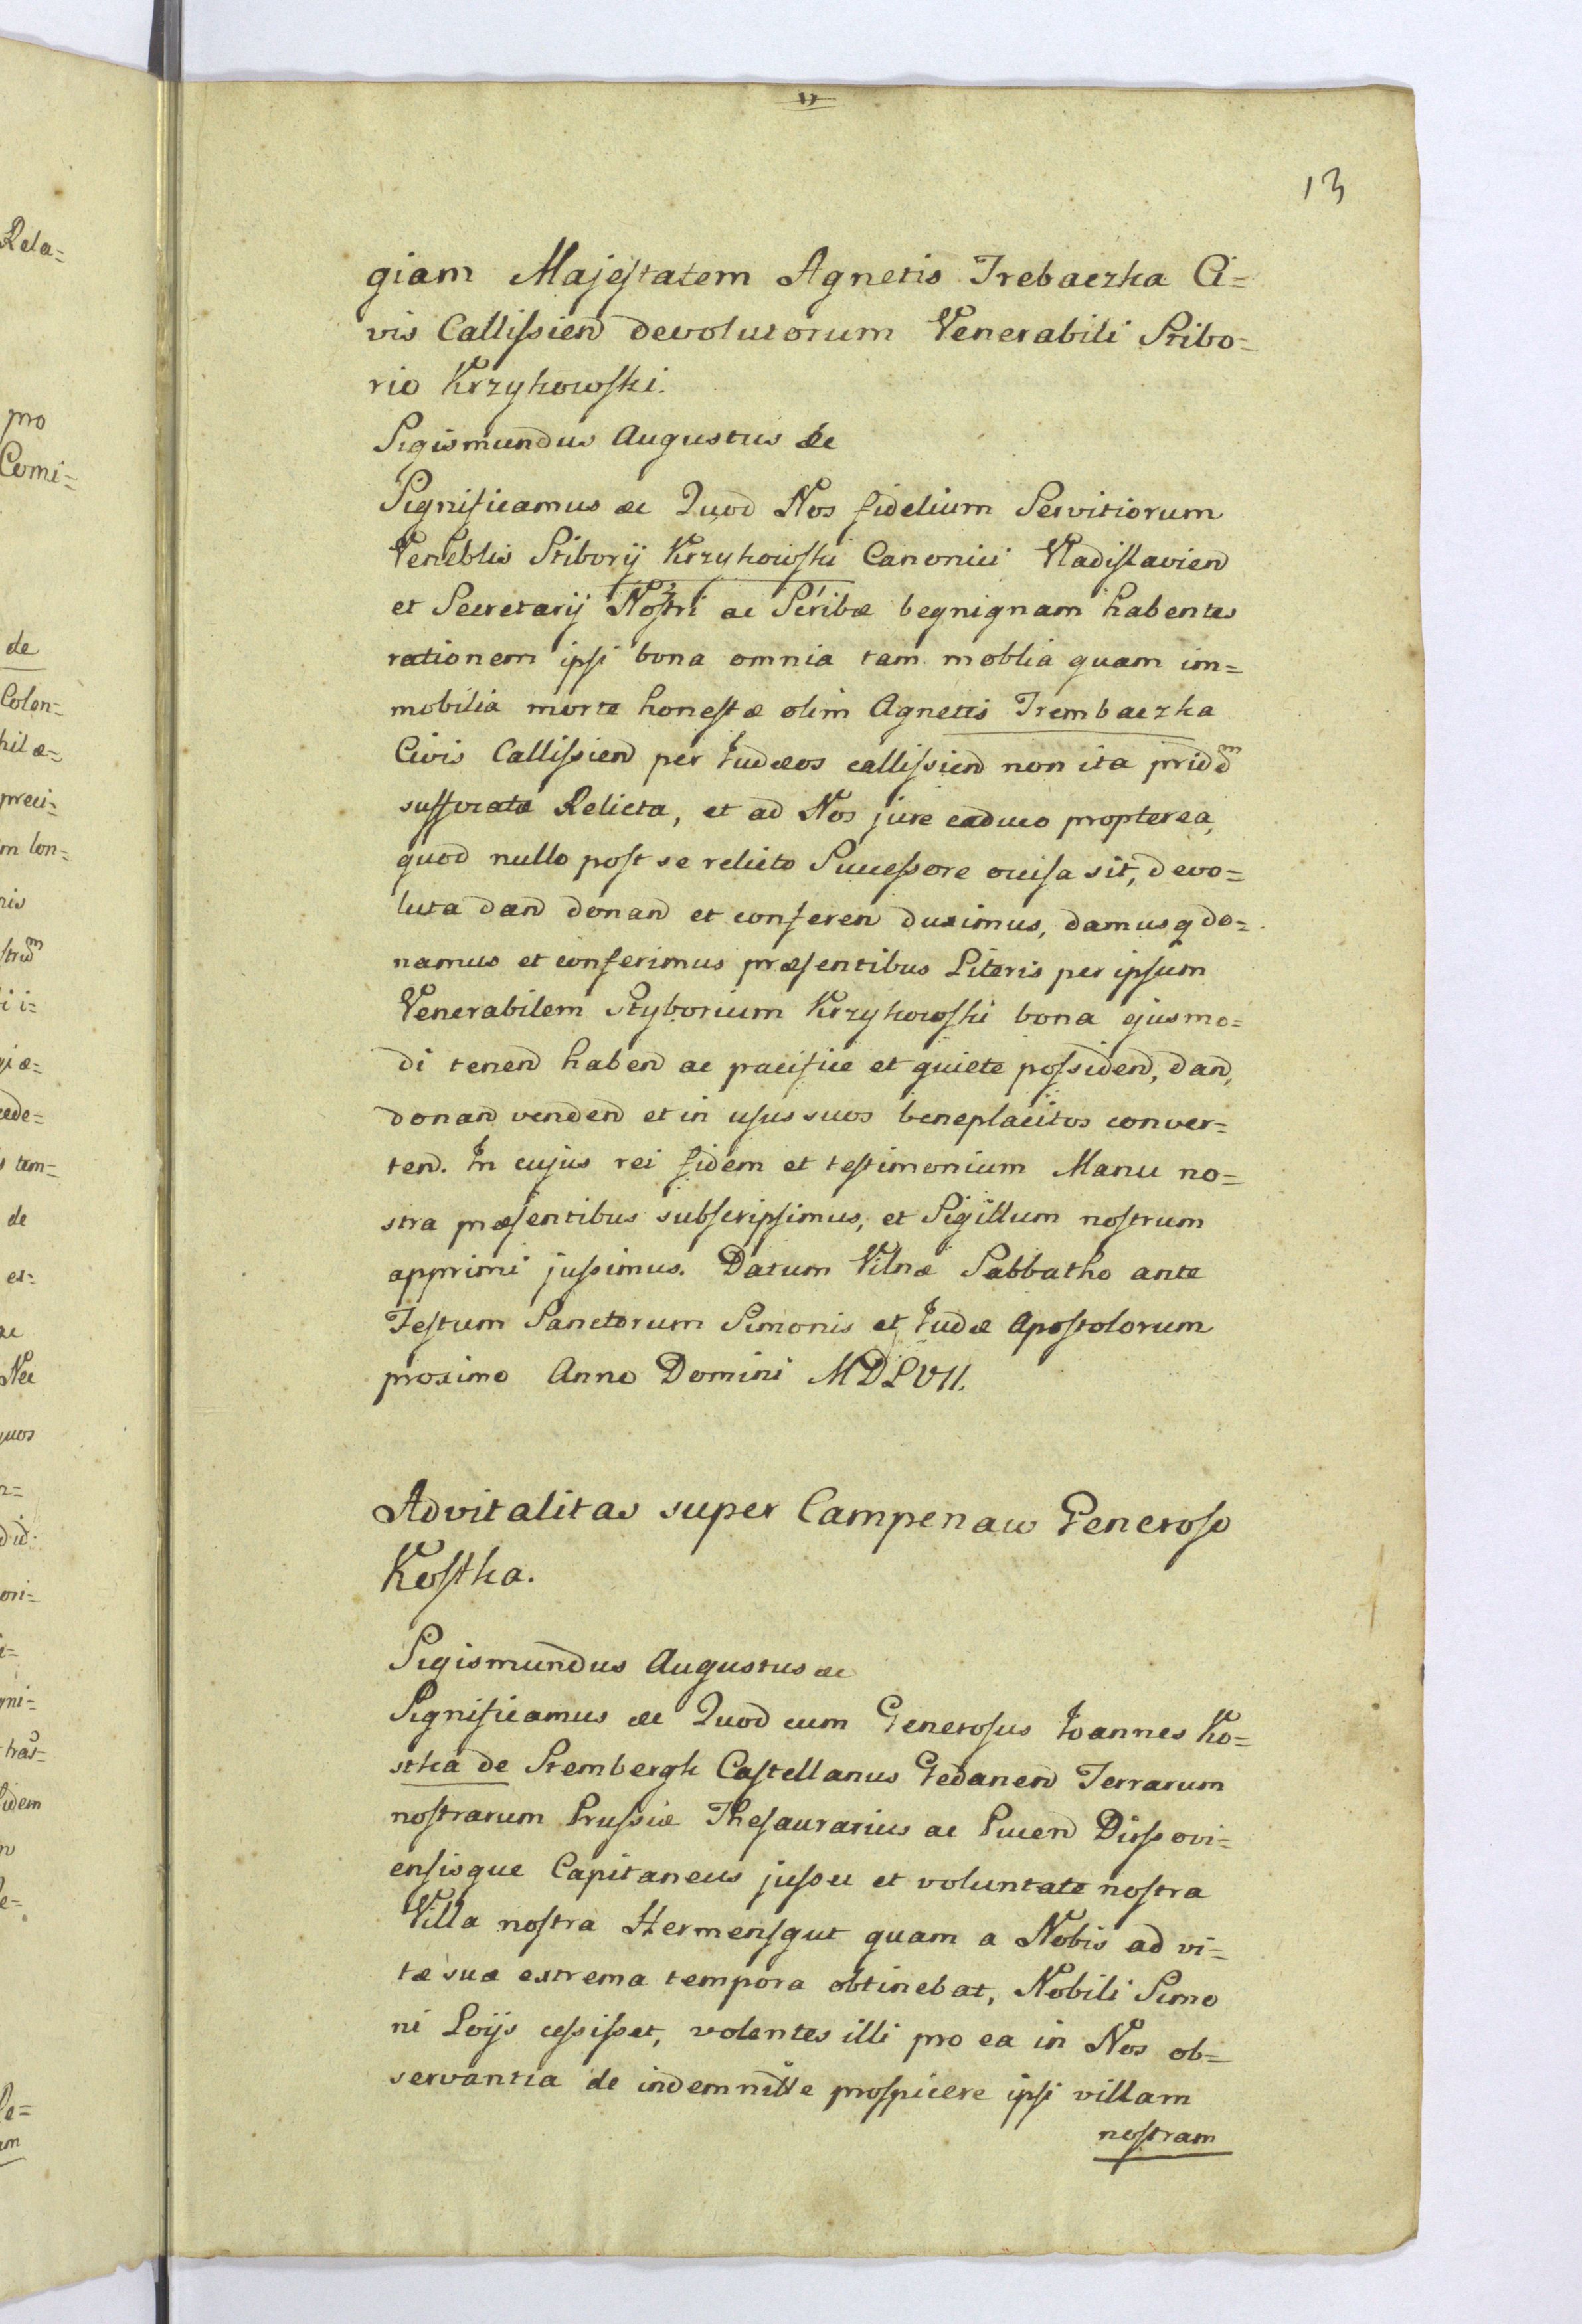 13
giam Majestatem Agnetis Trebaczka Ci=
vis Callissien devolutorum Venerabili Stibo=
rio Krzykowski.
Sigismundus Augustus &c
Significamus &c Quod Nos fidelium Servitiorum
Veneblis Stiborij Krzykowski Canonici Vladislavien
et Secretarij Nostri ac Scribæ begnignam habentes
rationem ipsi bona omnia tam moblia quam im=
mobilia morte honestæ olim Agnetis Trembaczka
Civis Callissien per Judæos callissien non ita pridem
suffocatæ Relicta, et ad Nos jure caduco propterea,
quod nullo post se relicto Successore occisa sit, devo=
luta dand donand et conferen duximus, damusq do=
namus et conferimus præsentibus Literis per ipsum
Venerabilem Styborium Krzykowski bona ejusmo=
di tenend habend ac pacifice et quiete possidend, dand,
donand vendend et in usus suos beneplacitos conver=
tend. In cujus rei fidem et testimonium Manu no=
stra præsentibus subscripsimus, et Sigillum nostrum
apprimi jussimus. Datum Vilnæ Sabbatho ante
Festum Sanctorum Simonis et Judæ Apostolorum
proximo Anno Domini MDLVII.
Advitalitas super Campenaw Generoso
Kostka.
Sigismundus Augustus &c
Significamus &c Quod cum Generosus Joannes Ko=
stka de Stembergk Castellanus Gedanend Terrarum
nostrarum Prussiæ Thesaurarius ac Pucen Dirssovi=
ensisque Capitaneus jussu et voluntate nostra
Villa nostra Hermensgut quam a Nobis ad vi=
tæ suæ extrema tempora obtinebat, Nobili Simo
ni Loijs cessisset, volentes illi pro ea in Nos ob=
servantia de indemnitte prospicere ipsi villam
nostram
Rela=
pro
de